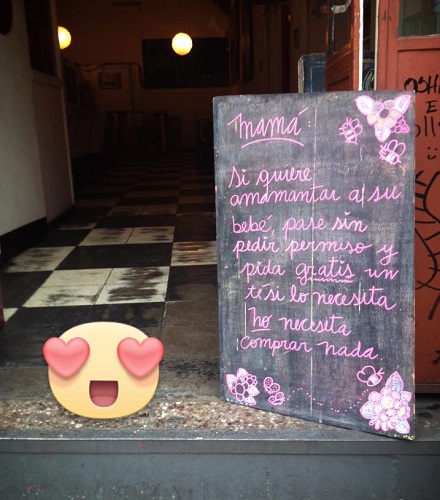 mamá:
Si quiere
amamantar a su
bebé, pase sin
pedir permiso y
pida gratis un
té si lo necesita
no necesita
comprar nada